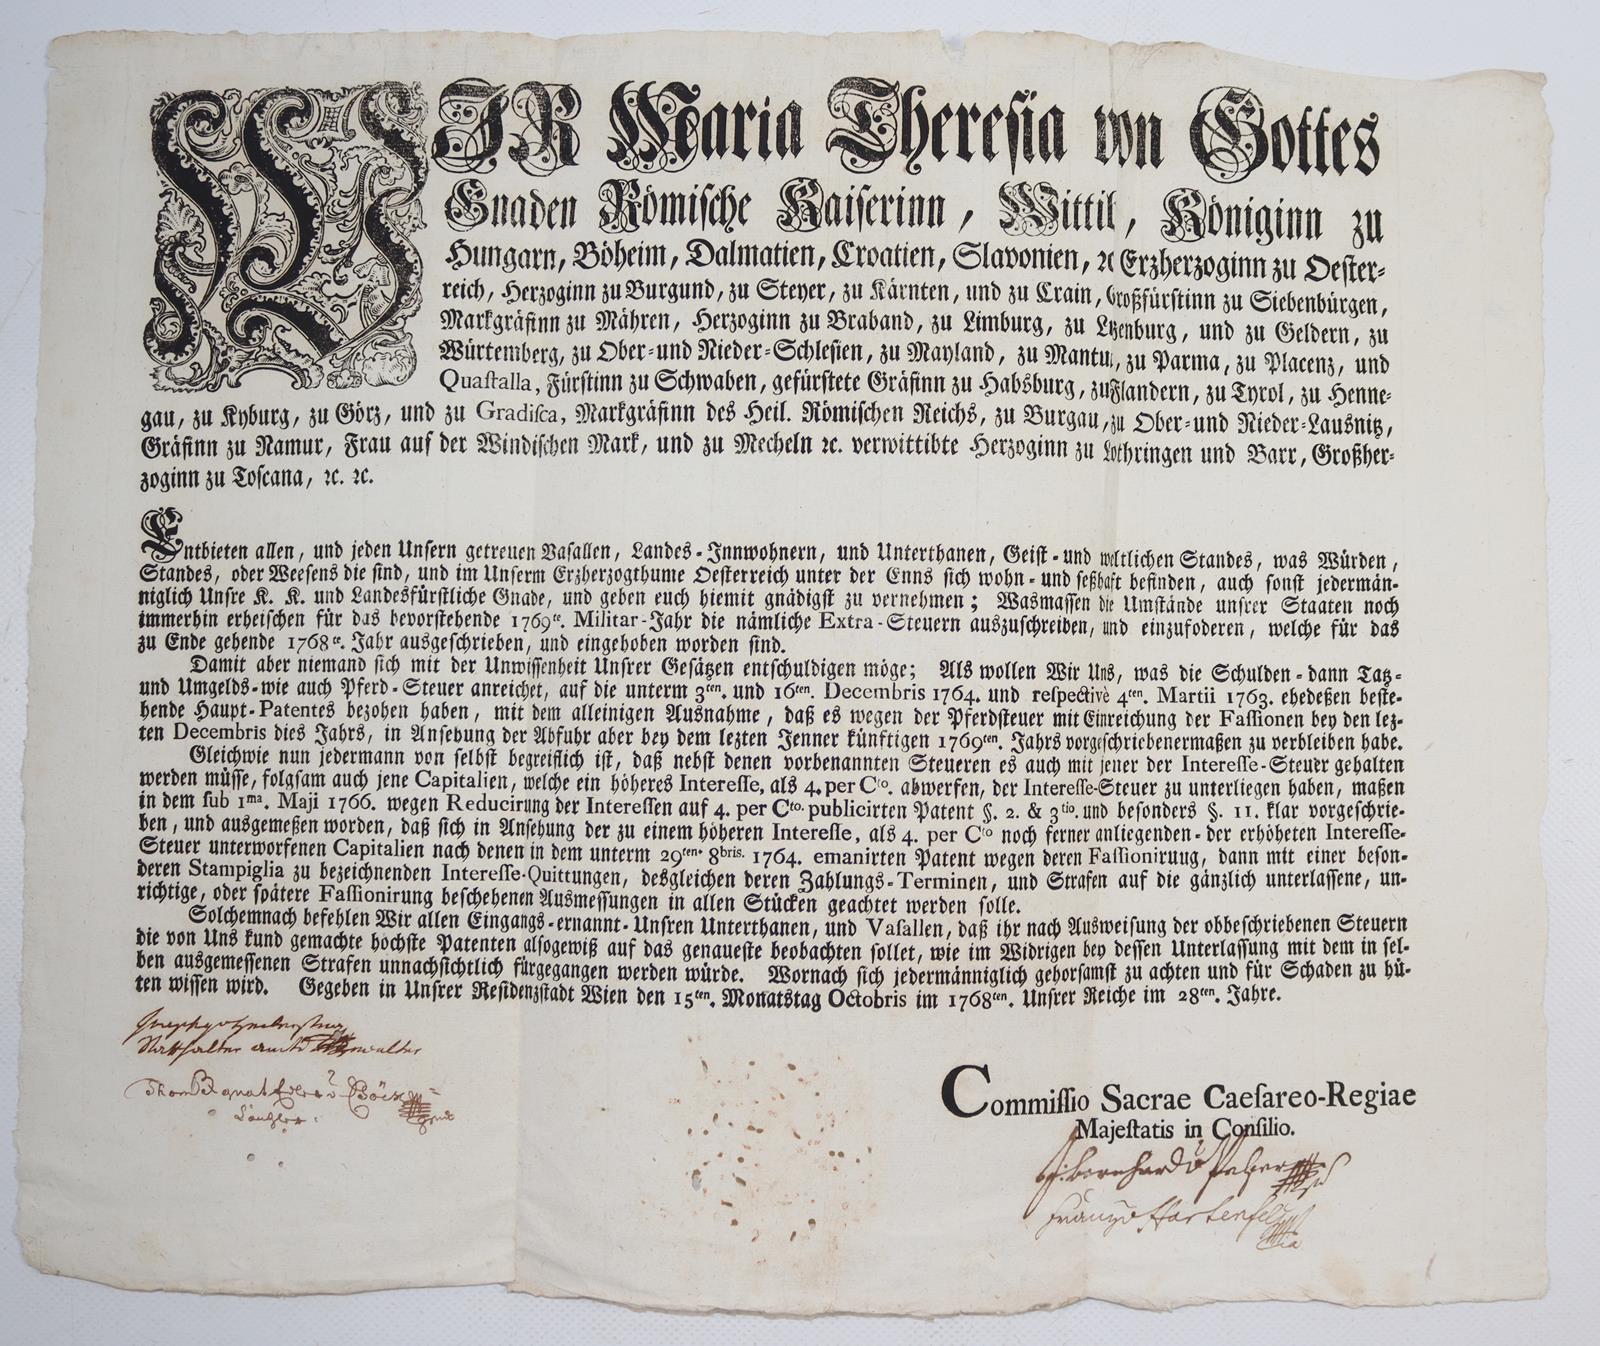 WIR Maria Theresia von Gottes
Gnaden Römische Kaiserinn, Wittib, Königinn zu
Hungarn, Böheim, Dalmatien, Croatien, Slavonien, ꝛc Erzherzoginn zu Oester-
reich, Herzoginn zu Burgund, zu Steyer, zu Kärnten, und zu Crain, Großfürstinn zu Siebenbürgen,
Markgräfinn zu Mähren, Herzoginn zu Braband, zu Limburg, zu Lützenburg, und zu Geldern, zu
Würtemberg, zu Ober- und Nieder-Schlesien, zu Mayland, zu Mantua, zu Parma, zu Placenz, und
Quastalla, Fürstinn zu Schwaben, gefürstete Gräfinn zu Habsburg, zu Flandern, zu Tyrol, zu Henne-
gau, zu Kyburg, zu Görz, und zu Gradisca, Markgräfinn des Heil. Römischen Reichs, zu Burgau, zu Ober- und Nieder-Lausnitz,
Gräfinn zu Namur, Frau auf der Windischen Mark, und zu Mecheln ꝛc. verwittibte Herzoginn zu Lothringen und Barr, Großher-
zoginn zu Toscana, ꝛc. ꝛc.
Entbieten allen, und jeden Unsern getreuen Vasallen, Landes-Innwohnern, und Unterthanen, Geist- und weltlichen Standes, was Würden,
Standes, oder Weesens die sind, und im Unserm Erzherzogthume Oesterreich unter der Enns sich wohn- und seßhaft befinden, auch sonst jedermän-
niglich Unsre K. K. und Landesfürstliche Gnade, und geben euch hiemit gnädigst zu vernehmen; Wasmassen die Umstände unsrer Staaten noch
immerhin erheischen für das bevorstehende 1769te. Militar-Jahr die nämliche Extra-Steuern auszuschreiben, und einzufoderen, welche für das
zu Ende gehende 1768te. Jahr ausgeschrieben, und eingehoben worden sind.
Damit aber niemand sich mit der Unwissenheit Unsrer Gesätzen entschuldigen möge; Als wollen Wir Uns, was die Schulden- dann Tatz-
und Umgelds- wie auch Pferd-Steuer anreichet, auf die unterm 3ten. und 16ten. Decembris 1764. und respectivè 4ten. Martii 1763. ehedeßen beste-
hende Haupt-Patentes bezohen haben, mit dem alleinigen Ausnahme, daß es wegen der Pferdsteuer mit Einreichung der Fassionen bey den lez-
ten Decembris dies Jahrs, in Ansehung der Abfuhr aber bey dem lezten Jenner künftigen 1769ten. Jahrs vorgeschriebenermaßen zu verbleiben habe.
Gleichwie nun jedermann von selbst begreiflich ist, daß nebst denen vorbenannten Steueren es auch mit jener der Interesse-Steuer gehalten
werden müsse, folgsam auch jene Capitalien, welche ein höheres Interesse, als 4. per Cto. abwerfen, der Interesse-Steuer zu unterliegen haben, maßen
in dem sub 1ma. Maji 1766. wegen Reducirung der Interessen auf 4. per Cto. publicirten Patent §. 2. & 3tio. und besonders §. 11. klar vorgeschrie-
ben, und ausgemeßen worden, daß sich in Ansehung der zu einem höheren Interesse, als 4. per Cto noch ferner anliegenden- der erhöheten Interesse-
Steuer unterworfenen Capitalien nach denen in dem unterm 29ten. 8bris. 1764. emanirten Patent wegen deren Fassionirung, dann mit einer beson-
deren Stampiglia zu bezeichnenden Interesse-Quittungen, desgleichen deren Zahlungs-Terminen, und Strafen auf die gänzlich unterlassene, un-
richtige, oder spätere Fassionirung beschehenen Ausmessungen in allen Stücken geachtet werden solle.
Solchemnach befehlen Wir allen Eingangs-ernannt-Unsren Unterthanen, und Vasallen, daß ihr nach Ausweisung der obbeschriebenen Steuern
die von Uns kund gemachte höchste Patenten alsogewiß auf das genaueste beobachten sollet, wie im Widrigen bey dessen Unterlassung mit dem in sel-
ben ausgemessenen Strafen unnachsichtlich fürgegangen werden würde. Wornach sich jedermänniglich gehorsamst zu achten und für Schaden zu hü-
ten wissen wird. Gegeben in Unsrer Residenzstadt Wien den 15ten. Monatstag Octobris im 1768ten. Unsrer Reiche im 28ten. Jahre.
Statthalter
Commissio Sacrae Caesareo-Regiae
Majestatis in Consilio.